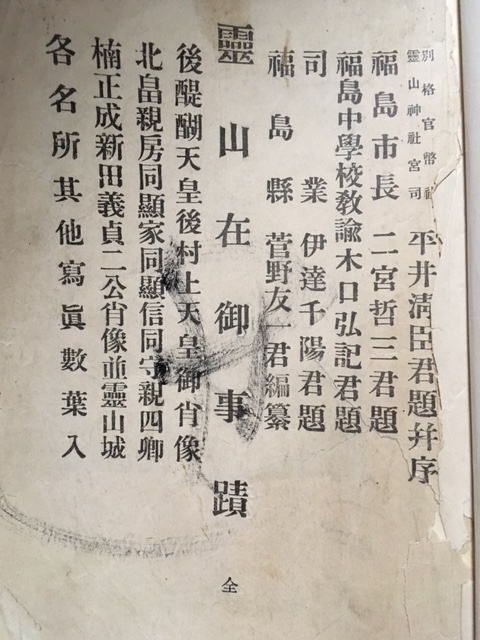 別格官幣社
靈山神社宮司
平井淸臣君題幷序
福島市長 二宮哲三君題
福島中學校敎諭木口弘記君題
司業 伊達千陽君題
福島縣 菅野友一君編纂
靈山在御事蹟
全
後醍醐天皇後村上天皇御肖像
北畠親房同顯家同顯信同守親四卿
楠正成新田義貞二公肖像並靈山城
各名所其他寫眞數葉入